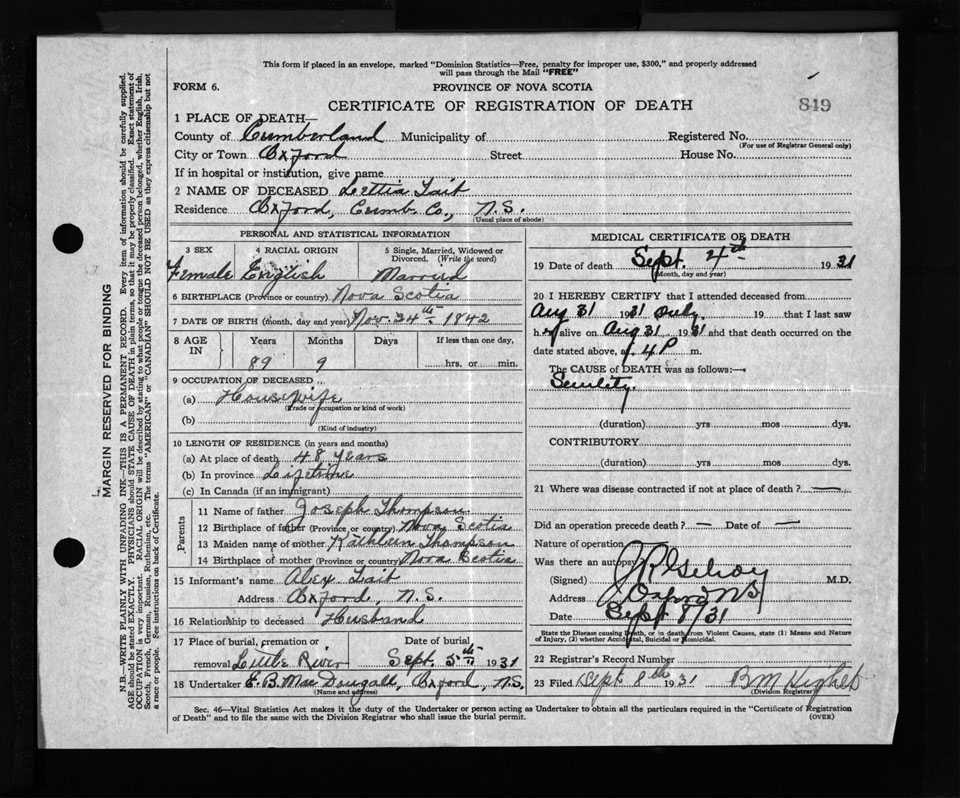 This form if placed in an envelope, marked "Dominion Statistics—Free, penalty for improper use, $300," and properly addressed
will pass through the Mail "FREE"
FORM 6.
PROVINCE OF NOVA SCOTIA
CERTIFICATE OF REGISTRATION OF DEATH
849
1 PLACE OF DEATH—
County of Cumberland Municipality of Registered No.
(For use of Registrar General only)
City or Town Oxford Street House No.
If in hospital or institution, give name
2 NAME OF DECEASED Lettia Tait
Residence Oxford, Cumb. Co., N.S.
(Usual place of abode)
PERSONAL AND STATISTICAL INFORMATION
3 SEX 4 RACIAL ORIGIN 5 Single, Married, Widowed or
Divorced. (Write the word)
Female English Married
6 BIRTHPLACE (Province or country) Nova Scotia
7 DATE OF BIRTH (month, day and year) Nov. 24th 1842
8 AGE IN Years Months Days If less than one day,
89 9 hrs. or min.
9 OCCUPATION OF DECEASED
(a) Housewife
(Trade or occupation or kind of work)
(b)
(Kind of industry)
10 LENGTH OF RESIDENCE (in years and months)
(a) At place of death 48 years
(b) In province Lifetime
(c) In Canada (if an immigrant)
Parents
11 Name of father Joseph Thompson
12 Birthplace of father (Province or country) Nova Scotia
13 Maiden name of mother Kathleen Thompson
14 Birthplace of mother (Province or country) Nova Scotia
15 Informant's name Alex. Tait
Address Oxford, N.S.
16 Relationship to deceased Husband
17 Place of burial, cremation or Date of burial,
removal Little River Sept. 5th 1931
18 Undertaker E. B. MacDougall, Oxford, N.S.
(Name and address)
MEDICAL CERTIFICATE OF DEATH
19 Date of death Sept. 4th 1931
(Month, day and year)
20 I HEREBY CERTIFY that I attended deceased from
Aug 31 1931 only. 19 that I last saw
her alive on Aug 31 1931 and that death occurred on the
date stated above, at 4 P m.
The CAUSE of DEATH was as follows:—
Senility
(duration) yrs mos dys.
CONTRIBUTORY
(duration) yrs mos dys.
21 Where was disease contracted if not at place of death? —
Did an operation precede death? — Date of —
Nature of operation
Was there an autopsy
(Signed) M.D.
Address Oxford NS
Date Sept 8/31
State the Disease causing Death, or in death from Violent Causes, state (1) Means and Nature
of Injury, (2) whether Accidental, Suicidal or Homicidal.
22 Registrar's Record Number
23 Filed Sept 8th 1931 B M
(Division Registrar)
Sec. 46—Vital Statistics Act makes it the duty of the Undertaker or person acting as Undertaker to obtain all the particulars required in the "Certificate of Registration
of Death" and to file the same with the Division Registrar who shall issue the burial permit.
(OVER)
MARGIN RESERVED FOR BINDING
N.B.—WRITE PLAINLY WITH UNFADING INK—THIS IS A PERMANENT RECORD. Every item of information should be carefully supplied.
AGE should be stated EXACTLY. PHYSICIANS should STATE CAUSE OF DEATH in plain terms, so that it may be properly classified. Exact statement of
OCCUPATION is very important. RACIAL ORIGIN will be described by stating to what people or tongue the deceased person belonged, whether English, Irish,
Scotch, French, German, Russian, Ruthenian, etc. The terms "AMERICAN" or "CANADIAN" SHOULD NOT BE USED as they express citizenship but not
a race or people. See instructions on back of Certificate.